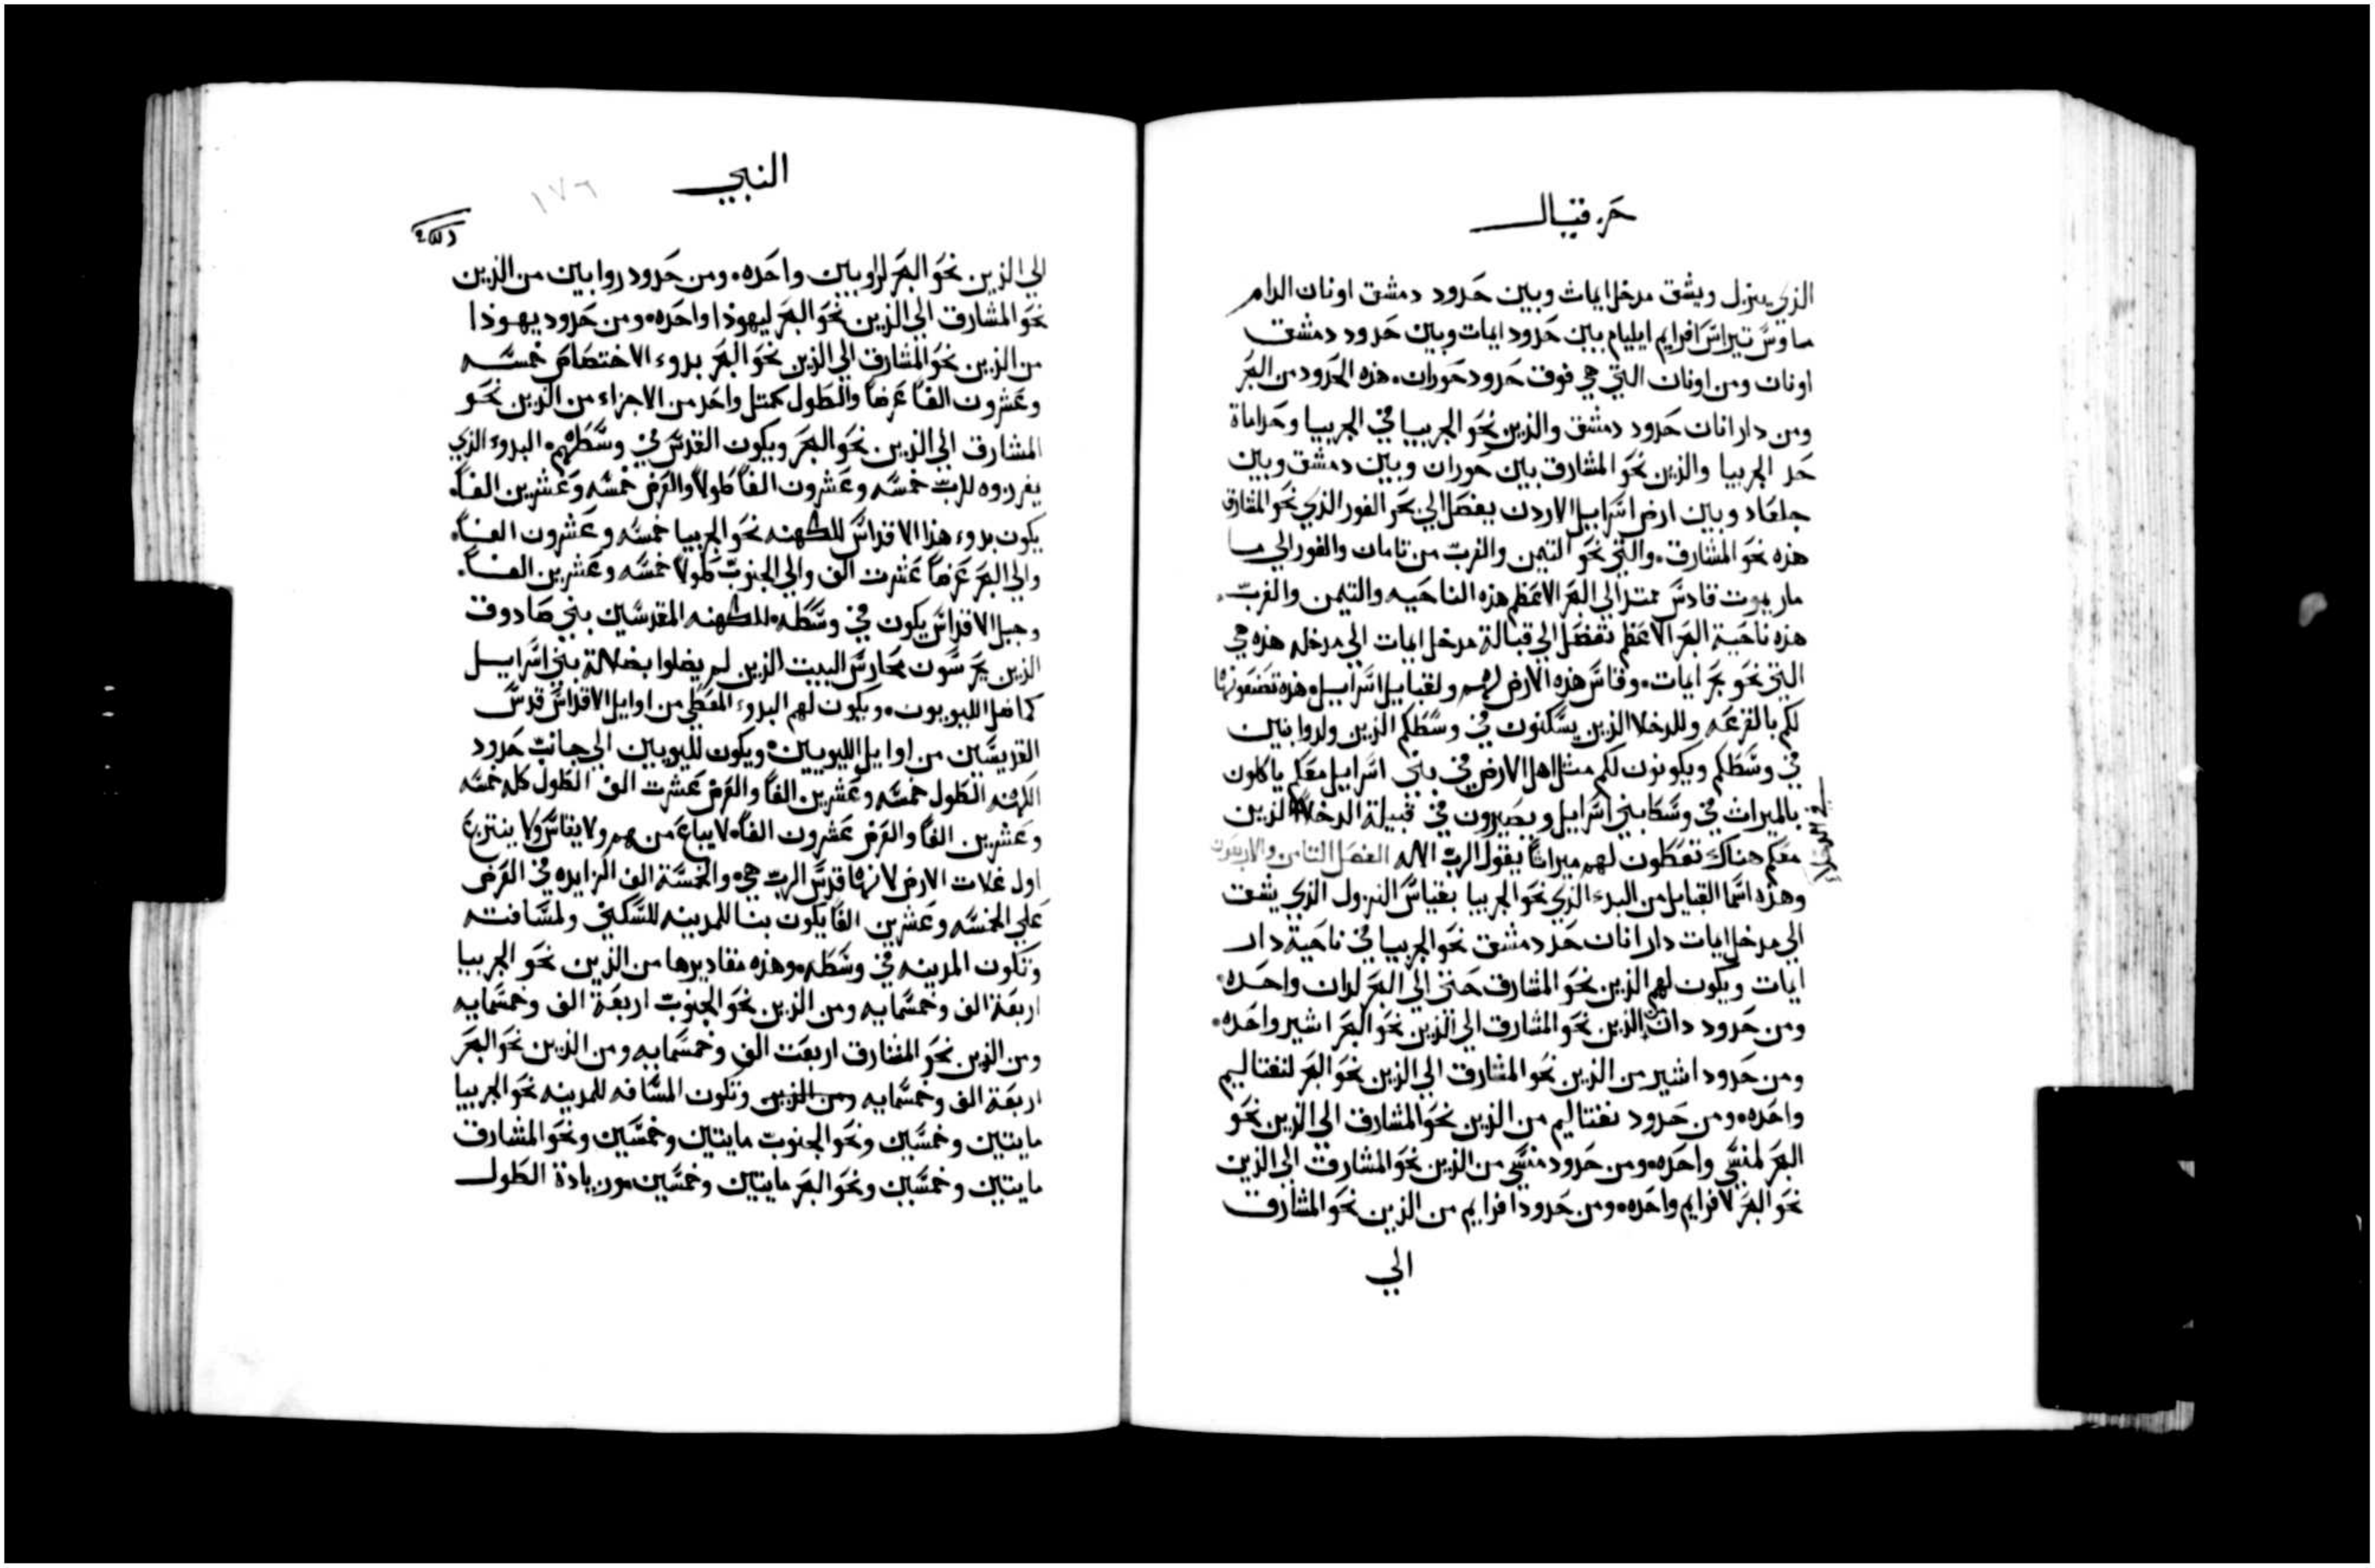 حزقيال
الذي ينزل ويشق مدخل ايماث وبين حدود دمشق اونان الدام
ماوس تيراس افرايم ايليام بين حدود ايمات وبين حدود دمشق
اونان ومن اونان التي هي فوق حدود حوران. هذه الحدود من البحر
ومن دارانان حدود دمشق والذين نحو الجربيا في الجربيا وحداماة
حد الجربيا والذين نحو المشارق بين حوران وبين دمشق وبين
جلعاد وبين ارض اسرايىل الاردن يفصل الي بحر الغور الذي نحو المشارق
هذه نحو المشارق. والتي نحو التيمن والغرب من تامان والغور الي ما
ماريموت قادس ممتد الي البحر الاعظم هذه الناحيه والتيمن والغرب.
هذه ناحية البحر الاعظم تفصل الي قبالة مدخل ايمات الي مدخله هذه هي
التي نحو بحر ايمات. وقاس هذه الارض لهم ولقبايل اسرايىل. هذه تضعونها
لكم بالقرعه وللدخلا الذين يسكنون في وسطكم الذين ولدوا بنين
في وسطكم ويكونون لكم مثل اهل الارض في بني اسرايىل معكم ياكلون
بالميراث في وسط بني اسرايىل ويصيرون في قبيلة الدخلا الذين
معكم هناك تعطون لهم ميراثاً يقول الرب الاله الفصل الثامن والاربعون
وهذه اسما القبايل من البدء الذي نحو الجربيا بقياس النزول الذي يشق
الي مدخل ايمات دارانان حد دمشق نحو الجربيا في ناحية دار
ايمات ويكون لهم الذين نحو المشارق حتي الي البحر لدان واحده.
ومن حدود دان الذين نحو المشارق الي الذين نحو البحر اشير واحده.
ومن حدود اشير من الذين نحو المشارق الي الذين نحو البحر لنفتاليم
واحده. ومن حدود نفتاليم من الذين نحو المشارق الي الذين نحو
البحر لمنسي واحده. ومن حدود منسي من الذين نحو المشارق الي الذين
نحو البحر لافرايم واحده. ومن حدود افرايم من الذين نحو المشارق
الي
النبي
١٧٦
الي الذين نحو البحر لروبيىن واحده. ومن حدود روابين من الذين
نحو المشارق الي الذين نحو البحر ليهوذا واحده. ومن حدود يهوذا
من الذين نحو المشارق الي الذين نحو البحر بدوء الاختصاص خمسه
وعشرون الفاً عرضاً والطول كمثل واحد من الاجزاء من الذين نحو
المشارق الي الذين نحو البحر ويكون القدس في وسطهم. البدوء الذي
يفردوه للرب خمسه وعشرون الفاً طولاً والعرض خمسه وعشرين الفاً.
يكون بدوء هذا الاقداس للكهنه نحو الجربيا خمسه وعشرون الفاً.
والي البحر عرضاً عشرت الف والي الجنوب طولاً خمسه وعشرين الفاً.
وجبل الاقداس يكون في وسطه. للكهنه المقدسين بني صادوق
الذين يحرسون محارس البيت الذين لم يضلوا بضلالة بني اسرايىل
كما ضل الليويون. ويكون لهم البدوء المعطي من اوايل الاقداس قدس
القديسين من اوايل الليويين. ويكون لليويين الي جانب حدود
الكهنه الطول خمسه وعشرين الفاً والعرض عشرت الف الطول كله خمسه
وعشرين الفاً والعرض عشرون الفاً. لا يباع منهم ولا يقاس ولا ينتزع
اول غلات الارض لانها قدس الرب هي. والخمسة الف الزايده في العرض
علي الخمسه وعشرين الفاً يكون بنا للمدينه للسكني ولمسافته
وتكون المدينه في وسطه. وهذه مقاديرها من الذين نحو الجربيا
اربعة الف وخمسمايه ومن الذين نحو الجنوب اربعة الف وخمسمايه
ومن الذين نحو المشارق اربعت الف وخمسمايه ومن الذين نحو البحر
اربعة الف وخمسمايه ومن الذين وتكون المسافه للمدينه نحو الجربيا
مايتين وخمسين ونحو الجنوب مايتين وخمسين ونحو المشارق
مايتين وخمسين ونحو البحر مايتين وخمسين. وزيادة الطول